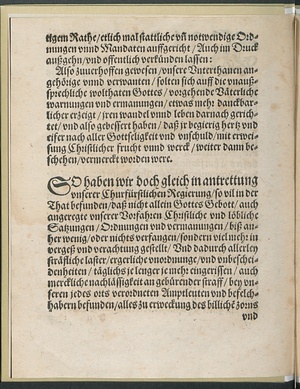 tigem Rathe/etlich mal stattliche vñ notwendige Ord-
nungen vnnd Mandaten auffgericht/Auch im Druck
außgehn/vnd offentlich verkünden lassen:
Also zuuerhoffen gewesen/vnsere Vnterthanen an-
gehörige vnnd verwanten/solten sich auff die vnauß-
sprechliche wolthaten Gottes/vorgehende Väterliche
warnungen vnd ermanungen/etwas mehr danckbar-
licher erzeigt/jren wandel vnnd leben darnach gerich-
tet/vnd also gebessert haben/daß jr begierig hertz vnd
eifer nach aller Gottseligkeit vnd vnschuld/mit erwei-
sung Christlicher frucht vnnd werck/weiter dann be-
schehen/vermerckt worden were.
SO haben wir doch gleich in antrettung
vnserer Churfürstlichen Regierung/so vil in der
That befunden/daß nicht allein Gottes Gebott/auch
angeregte vnserer Vorfahren Christliche vnd löbliche
Satzungen/Ordnungen vnd vermanungen/biß an-
her wenig/oder nichts verfangen/sondern viel mehr in
vergeß vnd verachtung gestellt/Vnd dadurch allerley
sträfliche laster/ergerliche vnordnunge/vnd vnbeschei-
denheiten/täglichs je lenger je mehr eingerissen/auch
merckliche nachlässigkeit an gebürender straff/bey vn-
seren jedes orts verordneten Amptleuten vnd befelch-
habern befunden/alles zu erweckung des billichē zorns
vnd